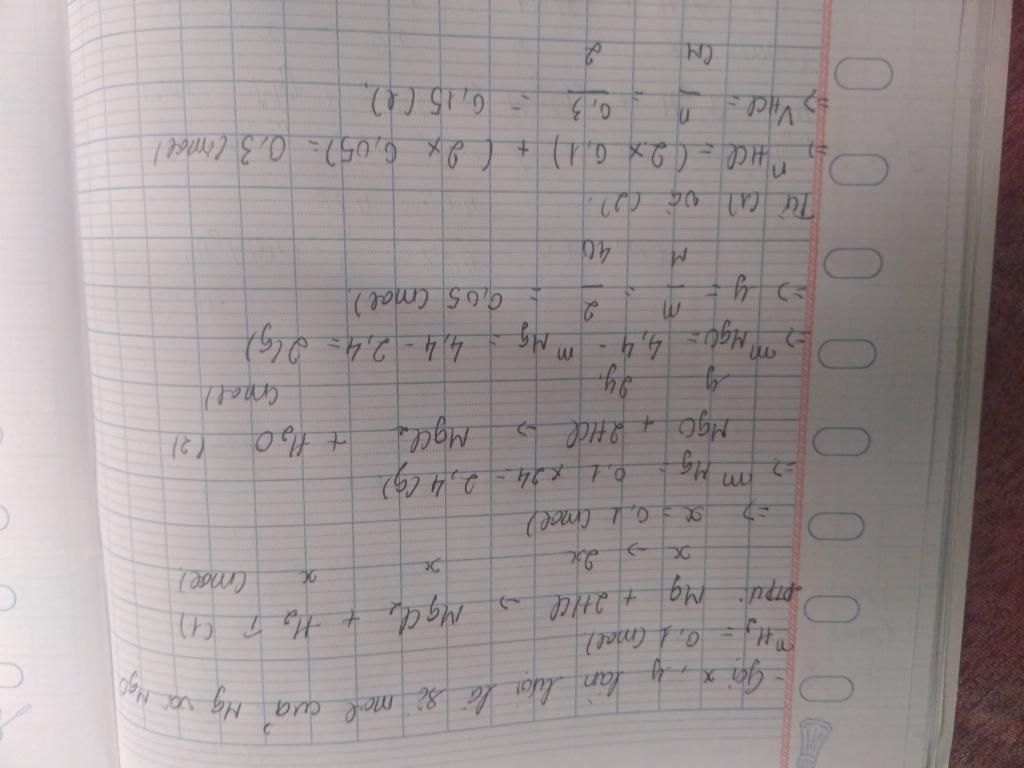 - Gọi x, y lần lượt là số mol của Mg và MgO
nH₂ = 0,1 (mol)
ptpư: Mg + 2HCl → MgCl₂ + H₂ ↑ (1)
x → 2x x x (mol)
=> x = 0,1 (mol)
=> mMg = 0,1 x 24 = 2,4 (g)
MgO + 2HCl → MgCl₂ + H₂O (2)
y 2y (mol)
=> mMgO = 4,4 - mMg = 4,4 - 2,4 = 2(g)
=> y = m/M = 2/40 = 0,05 (mol)
Từ (1) và (2):
=> nHCl = (2 x 0,1) + (2 x 0,05) = 0,3 (mol)
=> VHCl = n/CM = 0,3/2 = 0,15 (l).